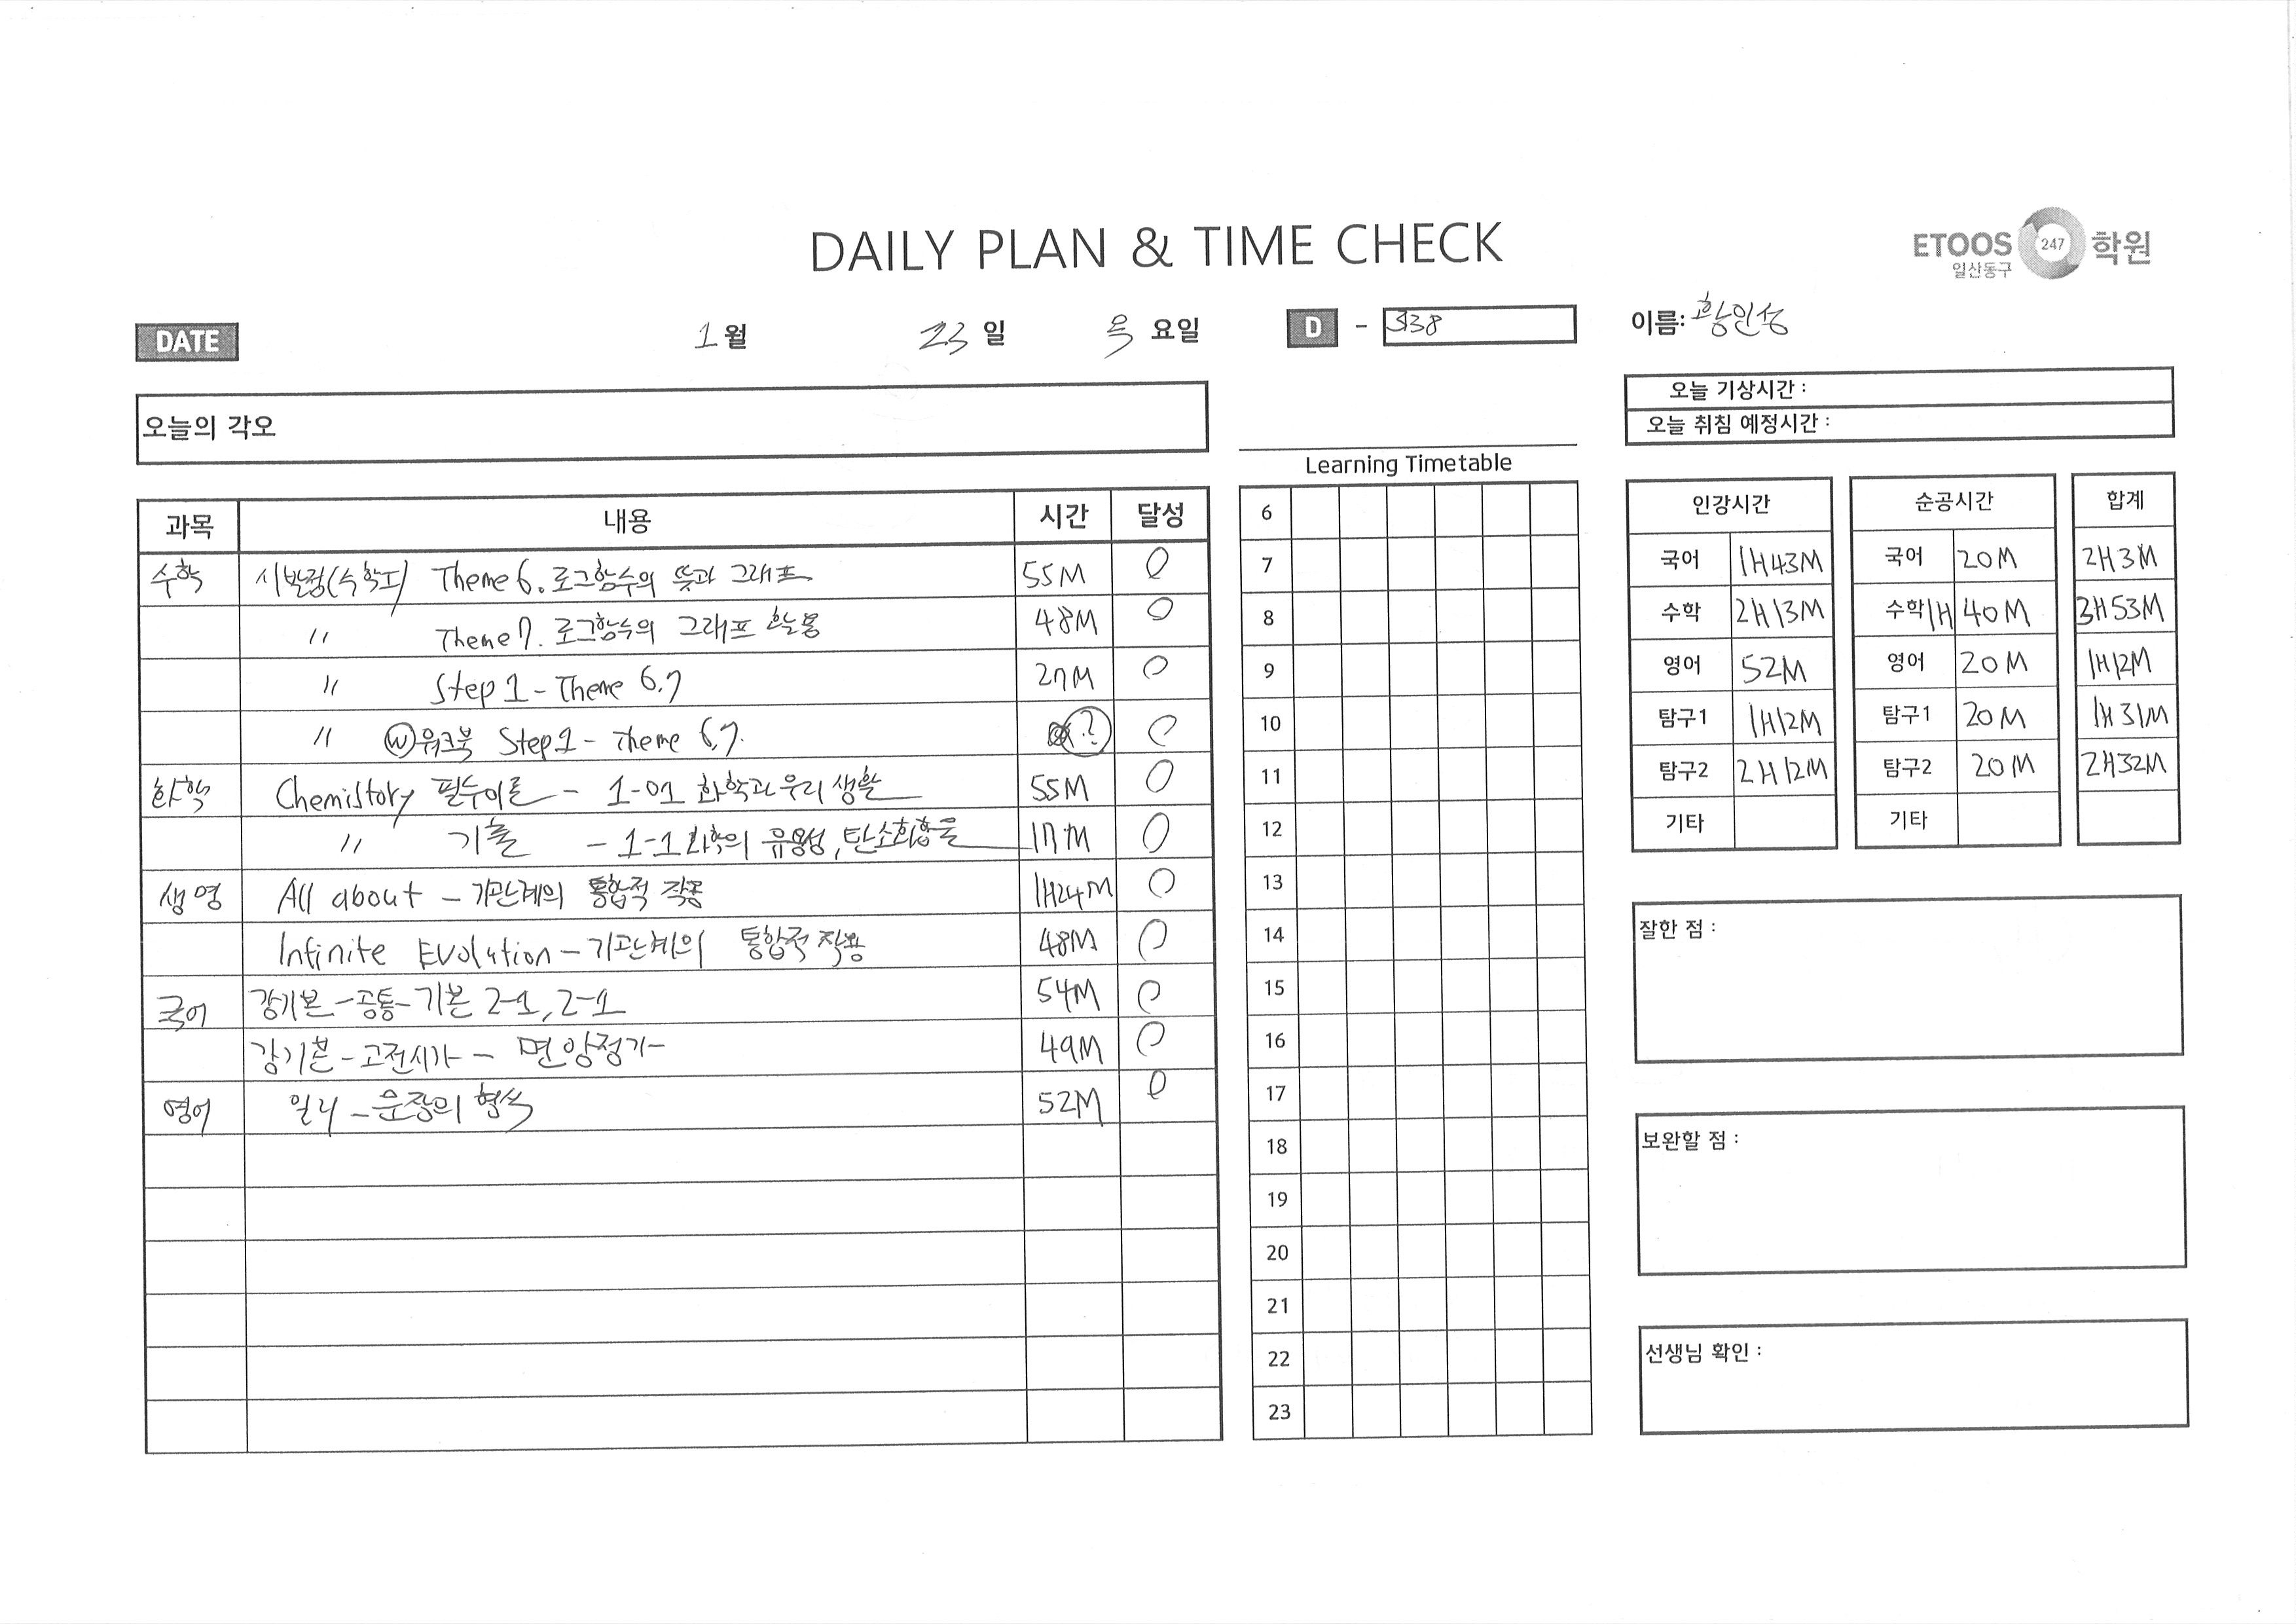 DAILY PLAN & TIME CHECK
ETOOS 247 학원
일산동구
DATE 1월 23일 목요일 D - 338 이름: 황인성
오늘의 각오
오늘 기상시간 :
오늘 취침 예정시간 :
과목 내용 시간 달성
수학 시발점(수학I) Theme 6. 로그함수의 뜻과 그래프 55M O
〃 Theme 7. 로그함수의 그래프 활용 48M O
〃 Step 1 - Theme 6.7 27M O
〃 W 워크북 Step 1 - Theme 6.7. ? O
화학 Chemistory 필수이론 - 1-01 화학과 우리 생활 55M O
〃 기출 - 1-1 화학의 유용성, 탄소화합물 17M O
생명 All about - 기관계의 통합적 작용 1H24M O
Infinite Evolution - 기관계의 통합적 작용 48M O
국어 강기본 - 공통 - 기본 2-1, 2-1 54M O
강기본 - 고전시가 - 면앙정가 49M O
영어 일리 - 문장의 형식 52M O
Learning Timetable
6
7
8
9
10
11
12
13
14
15
16
17
18
19
20
21
22
23
인강시간 순공시간 합계
국어 1H43M 국어 20M 2H3M
수학 2H13M 수학 1H 40M 3H53M
영어 52M 영어 20M 1H12M
탐구1 1H12M 탐구1 20M 1H31M
탐구2 2H12M 탐구2 20M 2H32M
기타 기타
잘한 점 :
보완할 점 :
선생님 확인 :